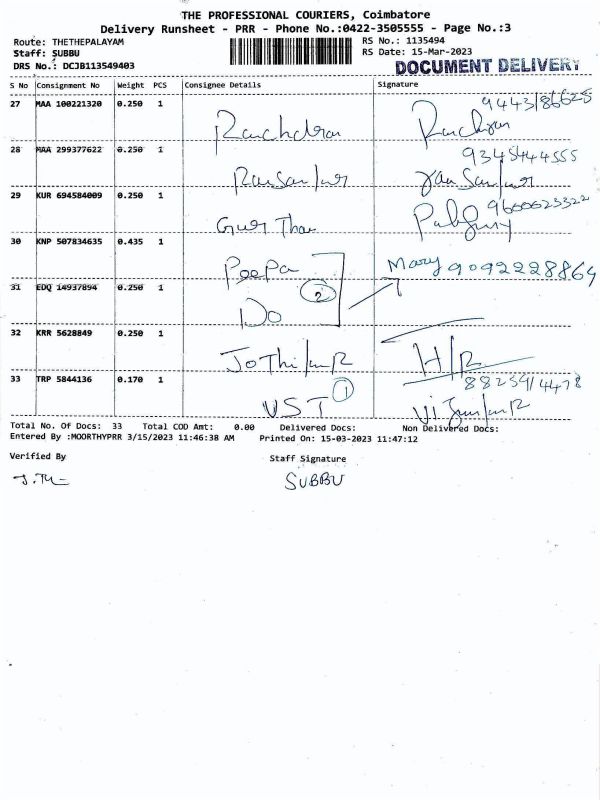 THE PROFESSIONAL COURIERS, Coimbatore
Delivery Runsheet - PRR - Phone No.:0422-3505555 - Page No.:3
Route: THETHEPALAYAM RS No.: 1135494
Staff: SUBBU RS Date: 15-Mar-2023
DRS No.: DCJB113549403 DOCUMENT DELIVERY
S No Consignment No Weight PCS Consignee Details Signature
27 MAA 100221320 0.250 1
28 MAA 299377622 0.250 1 9345444555
29 KUR 694584009 0.250 1 9600623322
30 KNP 507834635 0.435 1 PeePa Mary 9092228864
31 EDQ 14937894 0.250 1 Do 2
32 KRR 5628849 0.250 1 H/R
33 TRP 5844136 0.170 1 VST 1
Total No. Of Docs: 33 Total COD Amt: 0.00 Delivered Docs: Non Delivered Docs:
Entered By :MOORTHYPRR 3/15/2023 11:46:38 AM Printed On: 15-03-2023 11:47:12
Verified By Staff Signature
SUBBU